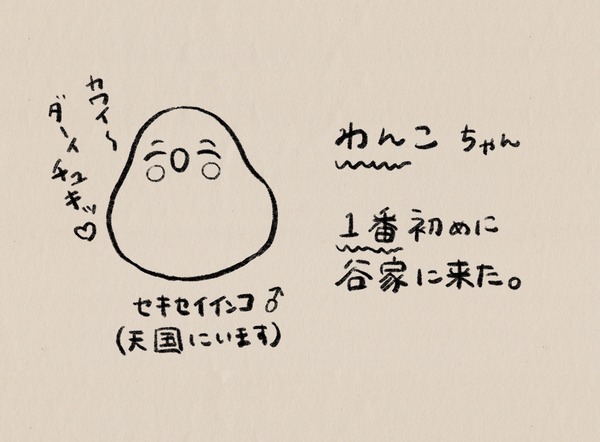 カワイ〜
ダーイ
チュキッ♡
セキセイインコ♂
(天国にいます)
わんこちゃん
1番初めに
谷家に来た。